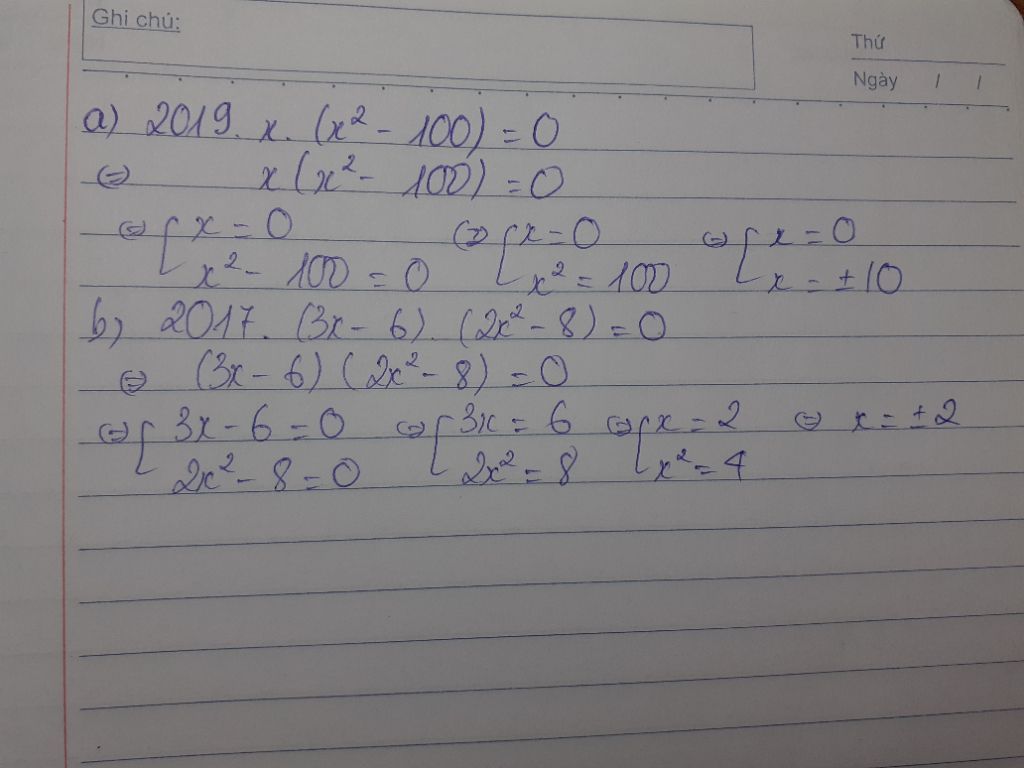 Ghi chú:
Thứ
Ngày / /
a) 2019. x. (x² - 100) = 0
⇔ x(x² - 100) = 0
⇔ [x = 0 ⇔ [x = 0 ⇔ [x = 0
x² - 100 = 0 x² = 100 x = ±10
b) 2017. (3x - 6). (2x² - 8) = 0
⇔ (3x - 6)(2x² - 8) = 0
⇔ [3x - 6 = 0 ⇔ [3x = 6 ⇔ [x = 2 ⇔ x = ±2
2x² - 8 = 0 2x² = 8 x² = 4